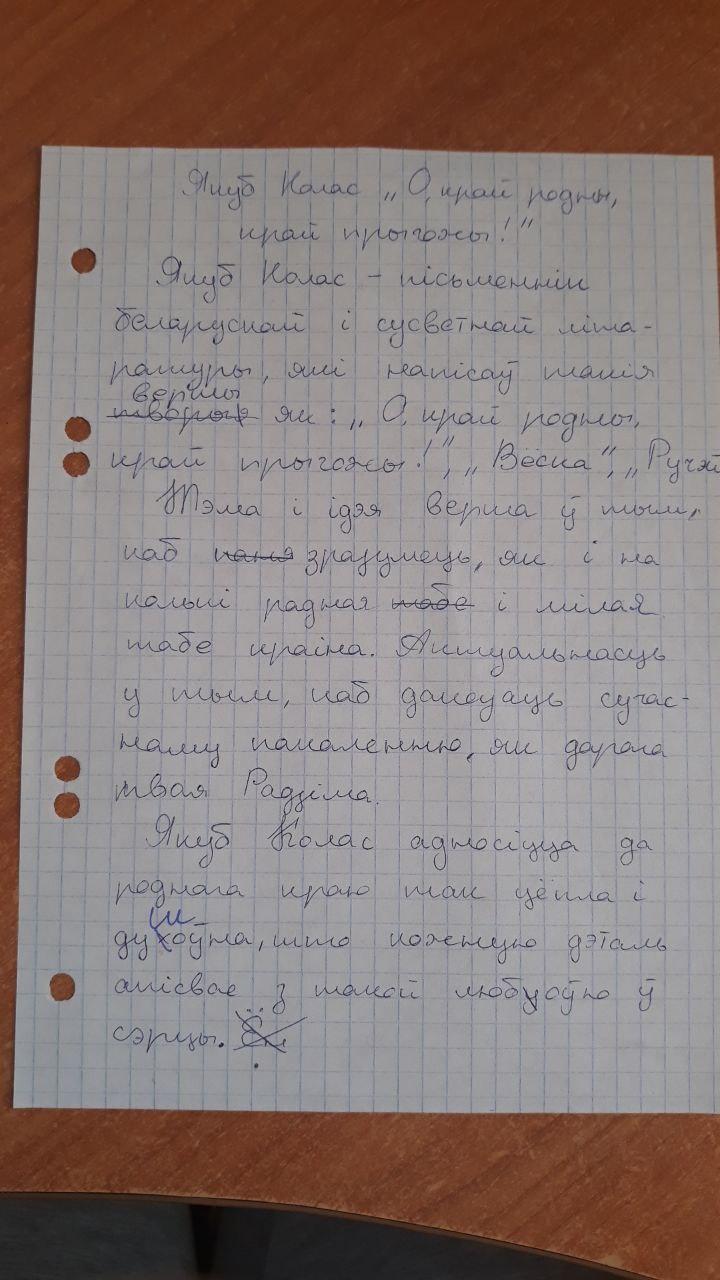 Якуб Колас „О, край родны,
край прыгожы!"
Якуб Колас – пісьменнік
беларускай і сусветнай літа-
ратуры, які напісаў такія
вершы
творыя як: „О, край родны,
край прыгожы!", „Вёска", „Ручэй
Тэма і ідэя верша ў тым,
каб зразумець, як і на
колькі радная табе і мілая
табе краіна. Актуальнасць
у тым, каб данесць сучас-
наму пакаленню, як дорага
твая Радзіма.
Якуб Колас адносіцца да
роднага краю так цёпла і
духоўна, што кожную дэталь
апісвае з такой любоўю ў
сэрцы.